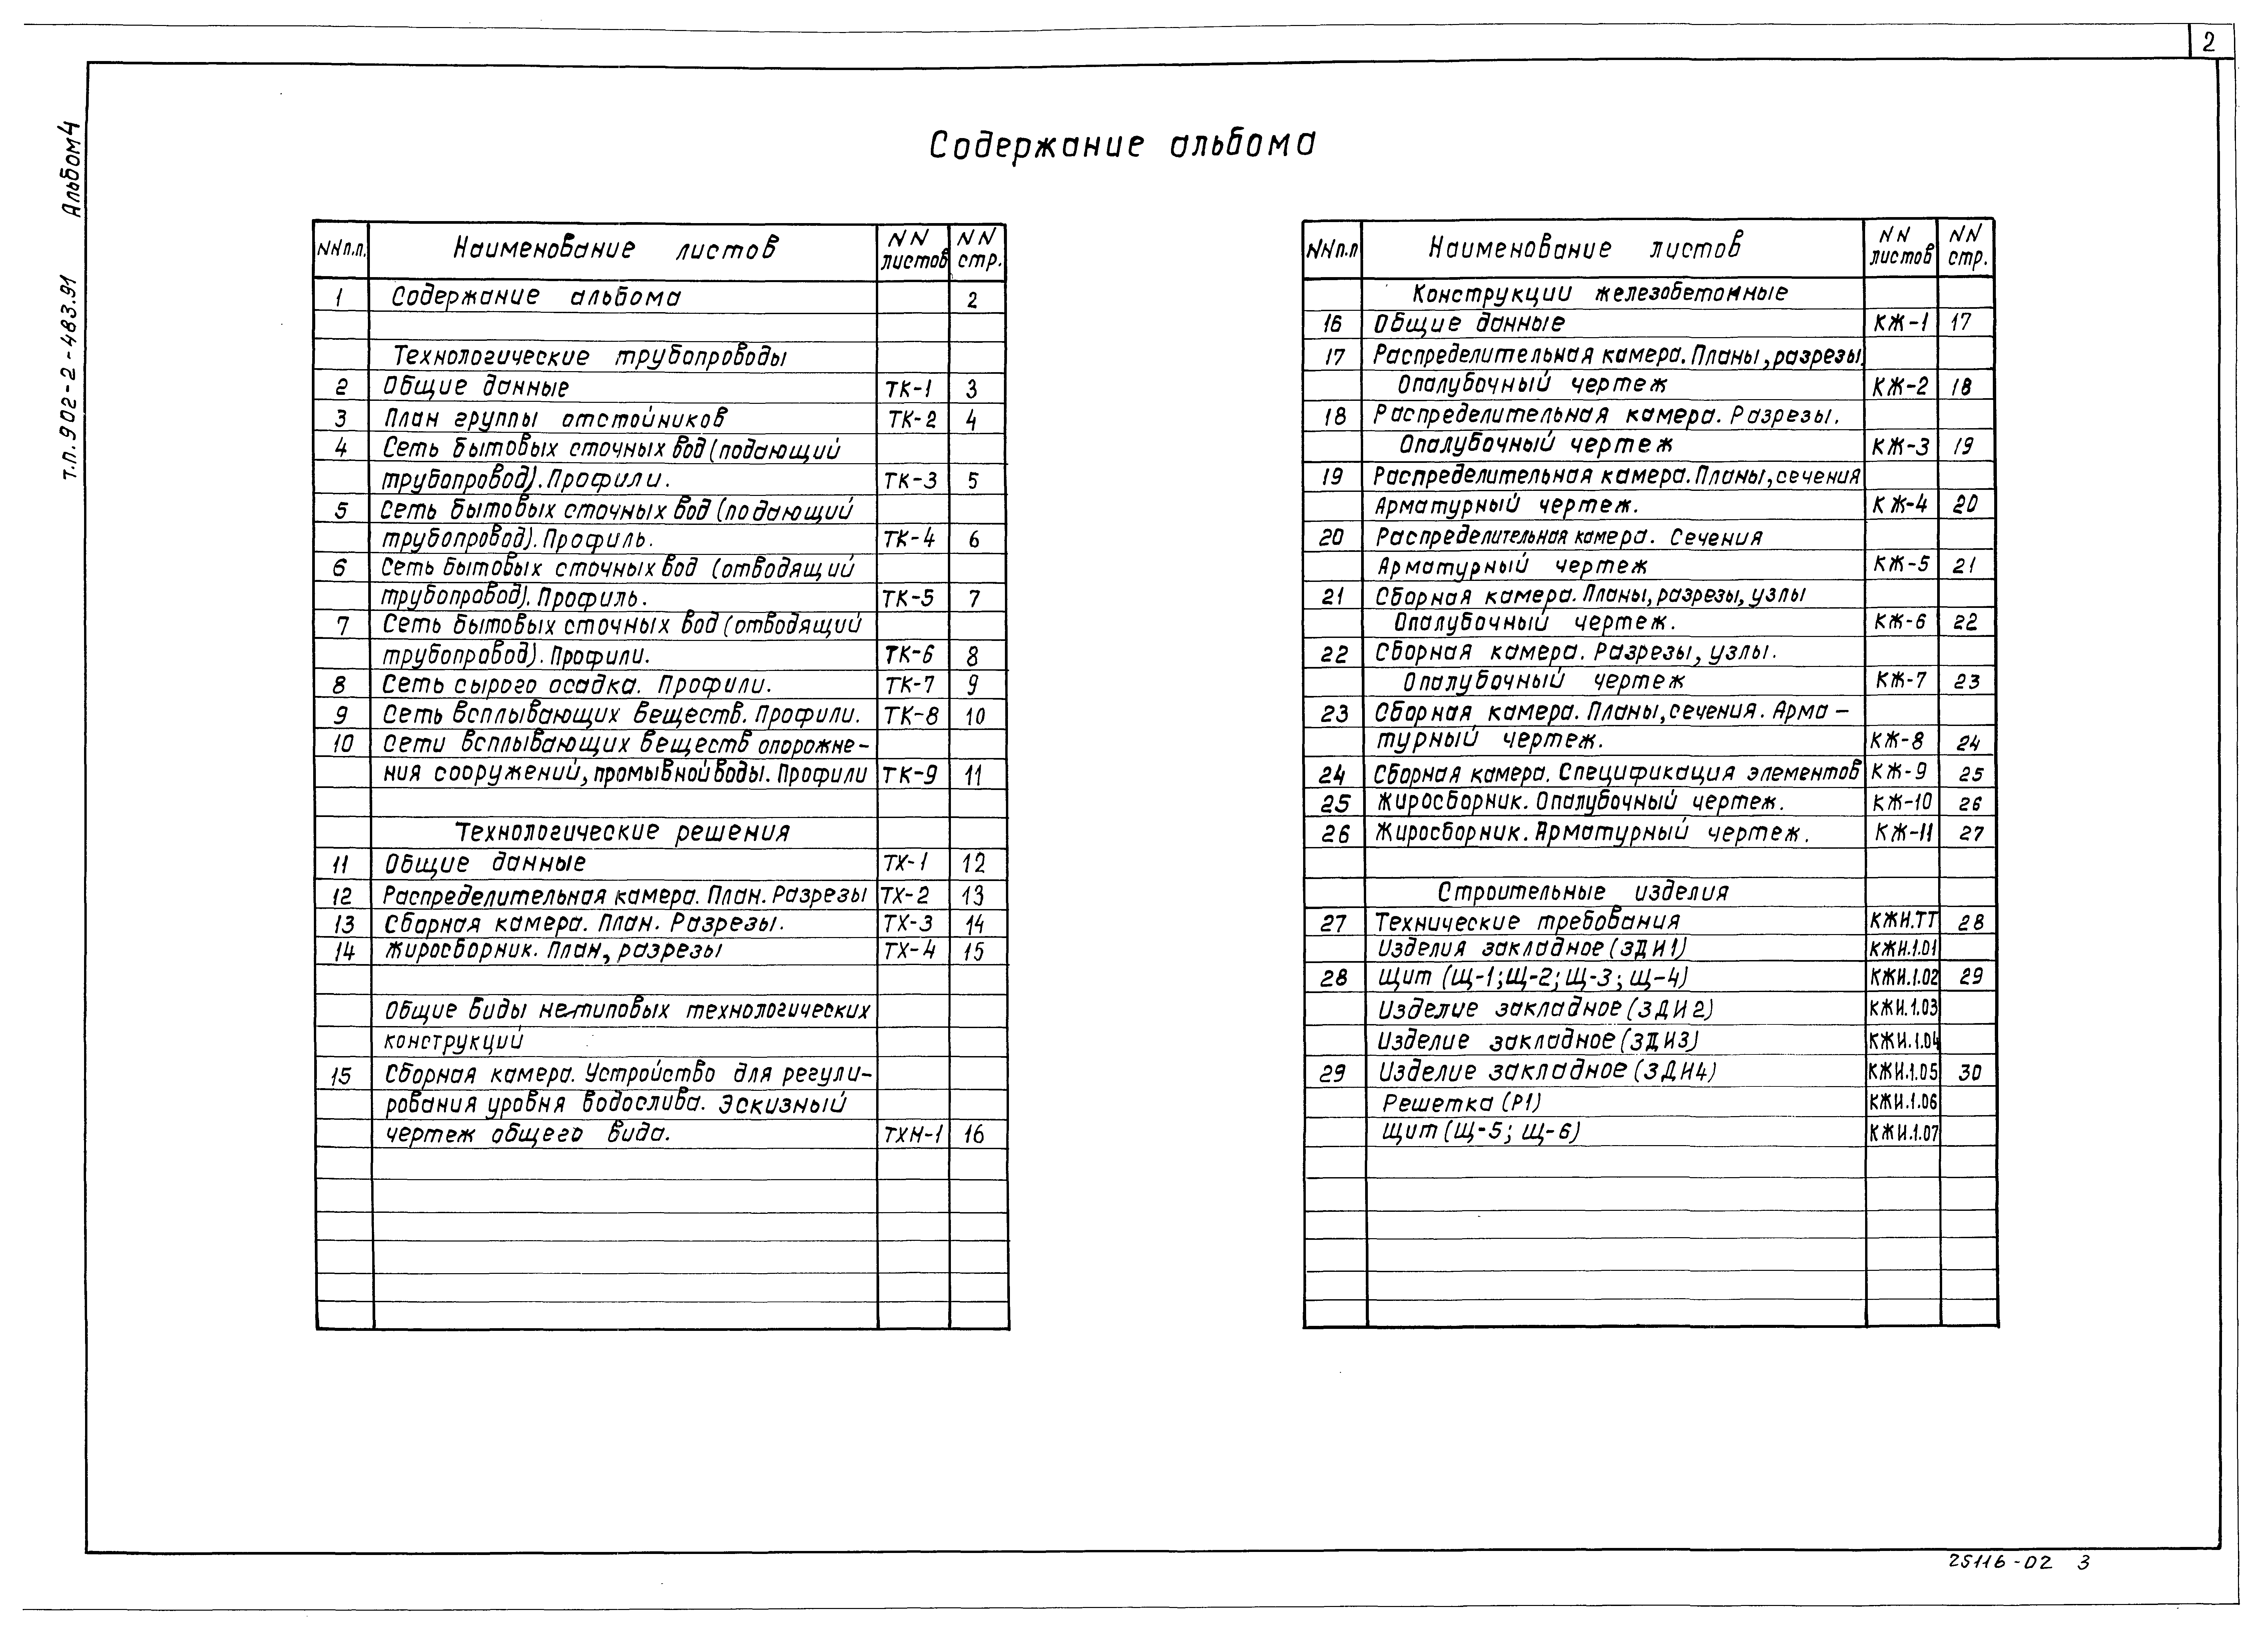 2
Альбом 4
т.п. 902-2-483.91
Содержание альбома
NN п.п. Наименование листов NN листов NN стр.
1 Содержание альбома 2
Технологические трубопроводы
2 Общие данные ТК-1 3
3 План группы отстойников ТК-2 4
4 Сеть бытовых сточных вод (подающий
трубопровод). Профили. ТК-3 5
5 Сеть бытовых сточных вод (подающий
трубопровод). Профиль. ТК-4 6
6 Сеть бытовых сточных вод (отводящий
трубопровод). Профиль. ТК-5 7
7 Сеть бытовых сточных вод (отводящий
трубопровод). Профили. ТК-6 8
8 Сеть сырого осадка. Профили. ТК-7 9
9 Сеть всплывающих веществ. Профили. ТК-8 10
10 Сети всплывающих веществ опорожне-
ния сооружений, промывной воды. Профили ТК-9 11
Технологические решения
11 Общие данные ТХ-1 12
12 Распределительная камера. План. Разрезы ТХ-2 13
13 Сборная камера. План. Разрезы. ТХ-3 14
14 Жиросборник. План, разрезы ТХ-4 15
Общие виды нетиповых технологических
конструкций
15 Сборная камера. Устройство для регули-
рования уровня водослива. Эскизный
чертеж общего вида. ТХН-1 16
NN п.п Наименование листов NN листов NN стр.
Конструкции железобетонные
16 Общие данные КЖ-1 17
17 Распределительная камера. Планы, разрезы.
Опалубочный чертеж КЖ-2 18
18 Распределительная камера. Разрезы.
Опалубочный чертеж КЖ-3 19
19 Распределительная камера. Планы, сечения
Арматурный чертеж. КЖ-4 20
20 Распределительная камера. Сечения
Арматурный чертеж КЖ-5 21
21 Сборная камера. Планы, разрезы, узлы
Опалубочный чертеж. КЖ-6 22
22 Сборная камера. Разрезы, узлы.
Опалубочный чертеж КЖ-7 23
23 Сборная камера. Планы, сечения. Арма-
турный чертеж. КЖ-8 24
24 Сборная камера. Спецификация элементов КЖ-9 25
25 Жиросборник. Опалубочный чертеж. КЖ-10 26
26 Жиросборник. Арматурный чертеж. КЖ-11 27
Строительные изделия
27 Технические требования КЖИ.ТТ 28
Изделия закладное (ЗДИ1) КЖИ.1.01
28 Щит (Щ-1; Щ-2; Щ-3; Щ-4) КЖИ.1.02 29
Изделие закладное (ЗДИ2) КЖИ.1.03
Изделие закладное (ЗДИ3) КЖИ.1.04
29 Изделие закладное (ЗДИ4) КЖИ.1.05 30
Решетка (Р1) КЖИ.1.06
Щит (Щ-5; Щ-6) КЖИ.1.07
25116-02 3